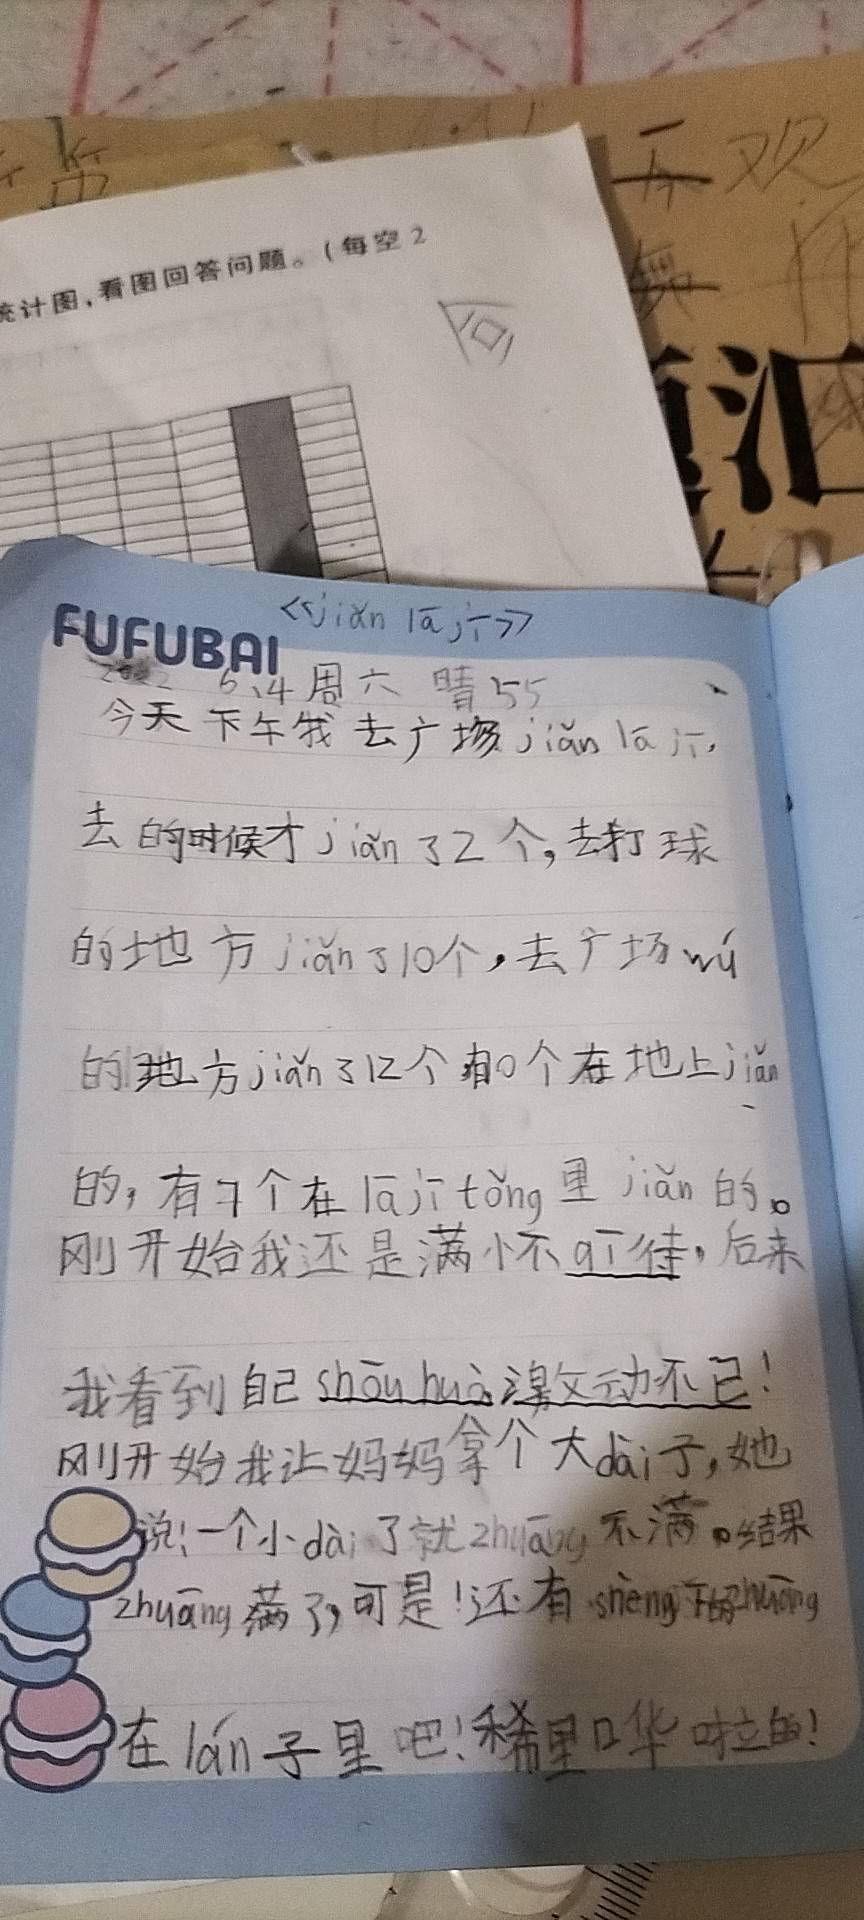 统计图，看图回答问题。（每空2
汇
FUFUBAI
《jiǎn lā jī》
2022 6、4周六 晴 55
今天下午我去广场jiǎn lā jī，
去的时候才jiǎn了2个，去打球
的地方jiǎn了10个，去广场wú
的地方jiǎn了12个有0个在地上jiǎn
的，有7个在lājī tǒng里jiǎn的。
刚开始我还是满怀qī待，后来
我看到自己shōu huò激动不已！
刚开始我让妈妈拿个大dài子，她
说：一个小dài了就zhuāng不满。结果
zhuāng满了，可是！还有shèng下的zhuāng
在lán子里吧！稀里口华啦的！